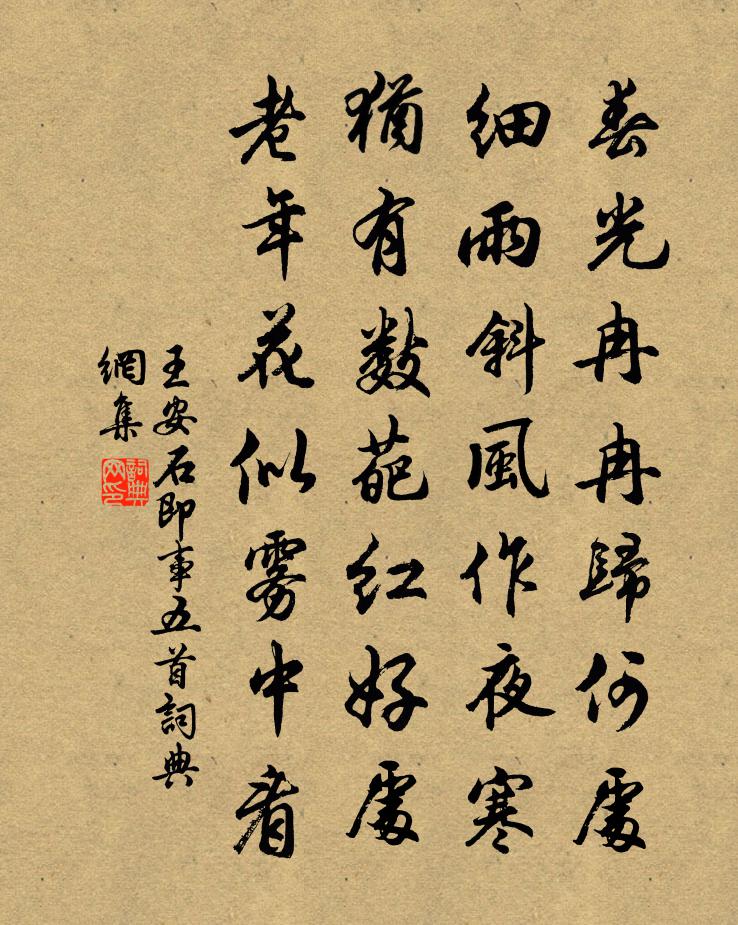 春光冉冉歸何處
細雨斜風作夜寒
猶有數葩紅好處
老年花似霧中看
王安石即事五首詞典
網集
詞典
网印